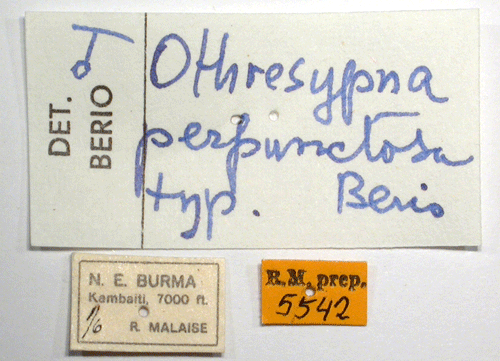 DET.
BERIO
♂ Othresypna
perpunctosa
typ. Berio
N. E. BURMA
Kambaiti, 7000 ft.
1/6 R. MALAISE
R.M. prep.
5542